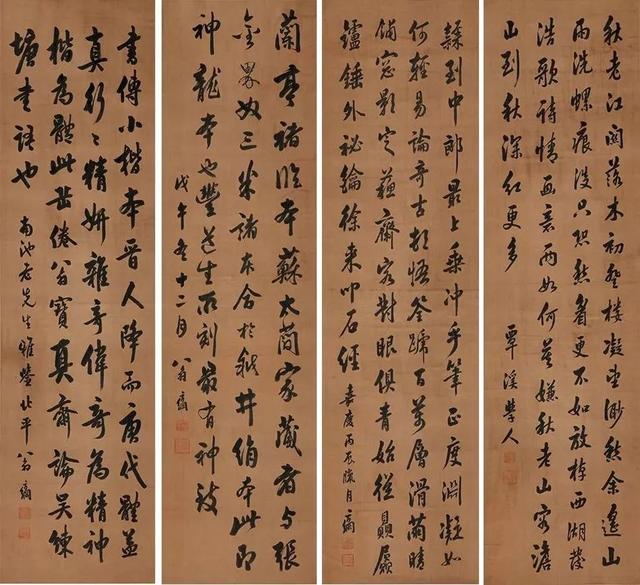 秋老江闊落木初登樓凝望渺愁余遙山
雨洗螺痕沒只恐愁看更不如放棹西湖發
浩歌詩情画意两如何莫嫌秋老山容澹
山到秋深紅更多 覃溪學人
隸到中郎最上乘沖乎筆正度淵凝如
何輕易論奇古都悟荃蹏百萬層滑蕳晴
鋪窓影定蘇齋客對眼俱青始從贔屭
鑪錘外祕綸徐来叩石經 嘉慶丙辰臘月 方綱
蘭亭褚臨本蘇太蕳家蔵者与張
金界奴三米諸本舍於越井綃本此即
神龍本也豐道生所刻最有神致
戊午冬十二月 翁方綱
書傳小楷本晋人降而唐代體益
真行〻精妍雖奇偉奇為精神
楷為體此岳倦翁寶真齋論吴練
塘書語也 南池老先生雅鑒 北平翁方綱